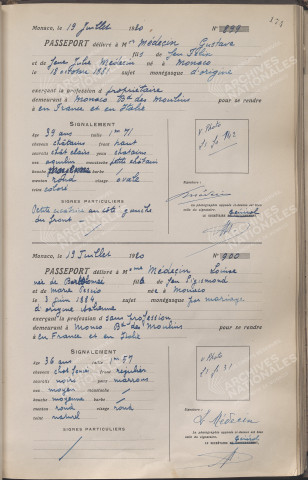 171
Monaco, le 19 Juillet 1920 N° 899
PASSEPORT délivré à Mr Médecin Gustave
fils de feu Félix
et de feue Julie Médecin né à Monaco
le 18 octobre 1881 sujet monégasque d'origine
exerçant la profession de propriétaire
demeurant à Monaco Bd des Moulins pour se rendre
à en France et en Italie
SIGNALEMENT
âgé 39 ans taille 1m 71
cheveux châtains front haut
sourcils chât clairs yeux châtains
nez aquilin moustache petite châtain
bouche moyenne barbe
menton rond visage ovale
teint coloré
SIGNES PARTICULIERS
Petite cicatrice au côté gauche
du front
v. Photo
Signature :
Médecin
La photographie apposée ci-dessus est
celle du signataire.
Monaco, le 19 Juillet 1920 N° 900
PASSEPORT délivré à Mme Médecin Louise
et de
le 3 juin 1884 sujet monégasque par mariage
d'origine italienne
exerçant la profession de sans profession
demeurant à Monaco Bd des Moulins pour se rendre
à en France et en Italie
SIGNALEMENT
âgé 36 ans taille 1m 57
cheveux chat foncé front régulier
sourcils noirs yeux marrons
nez moyen moustache
bouche moyenne barbe
menton rond visage rond
teint naturel
SIGNES PARTICULIERS
v. Photo
Signature :
L Médecin
La photographie apposée ci-dessus est
celle du signataire.